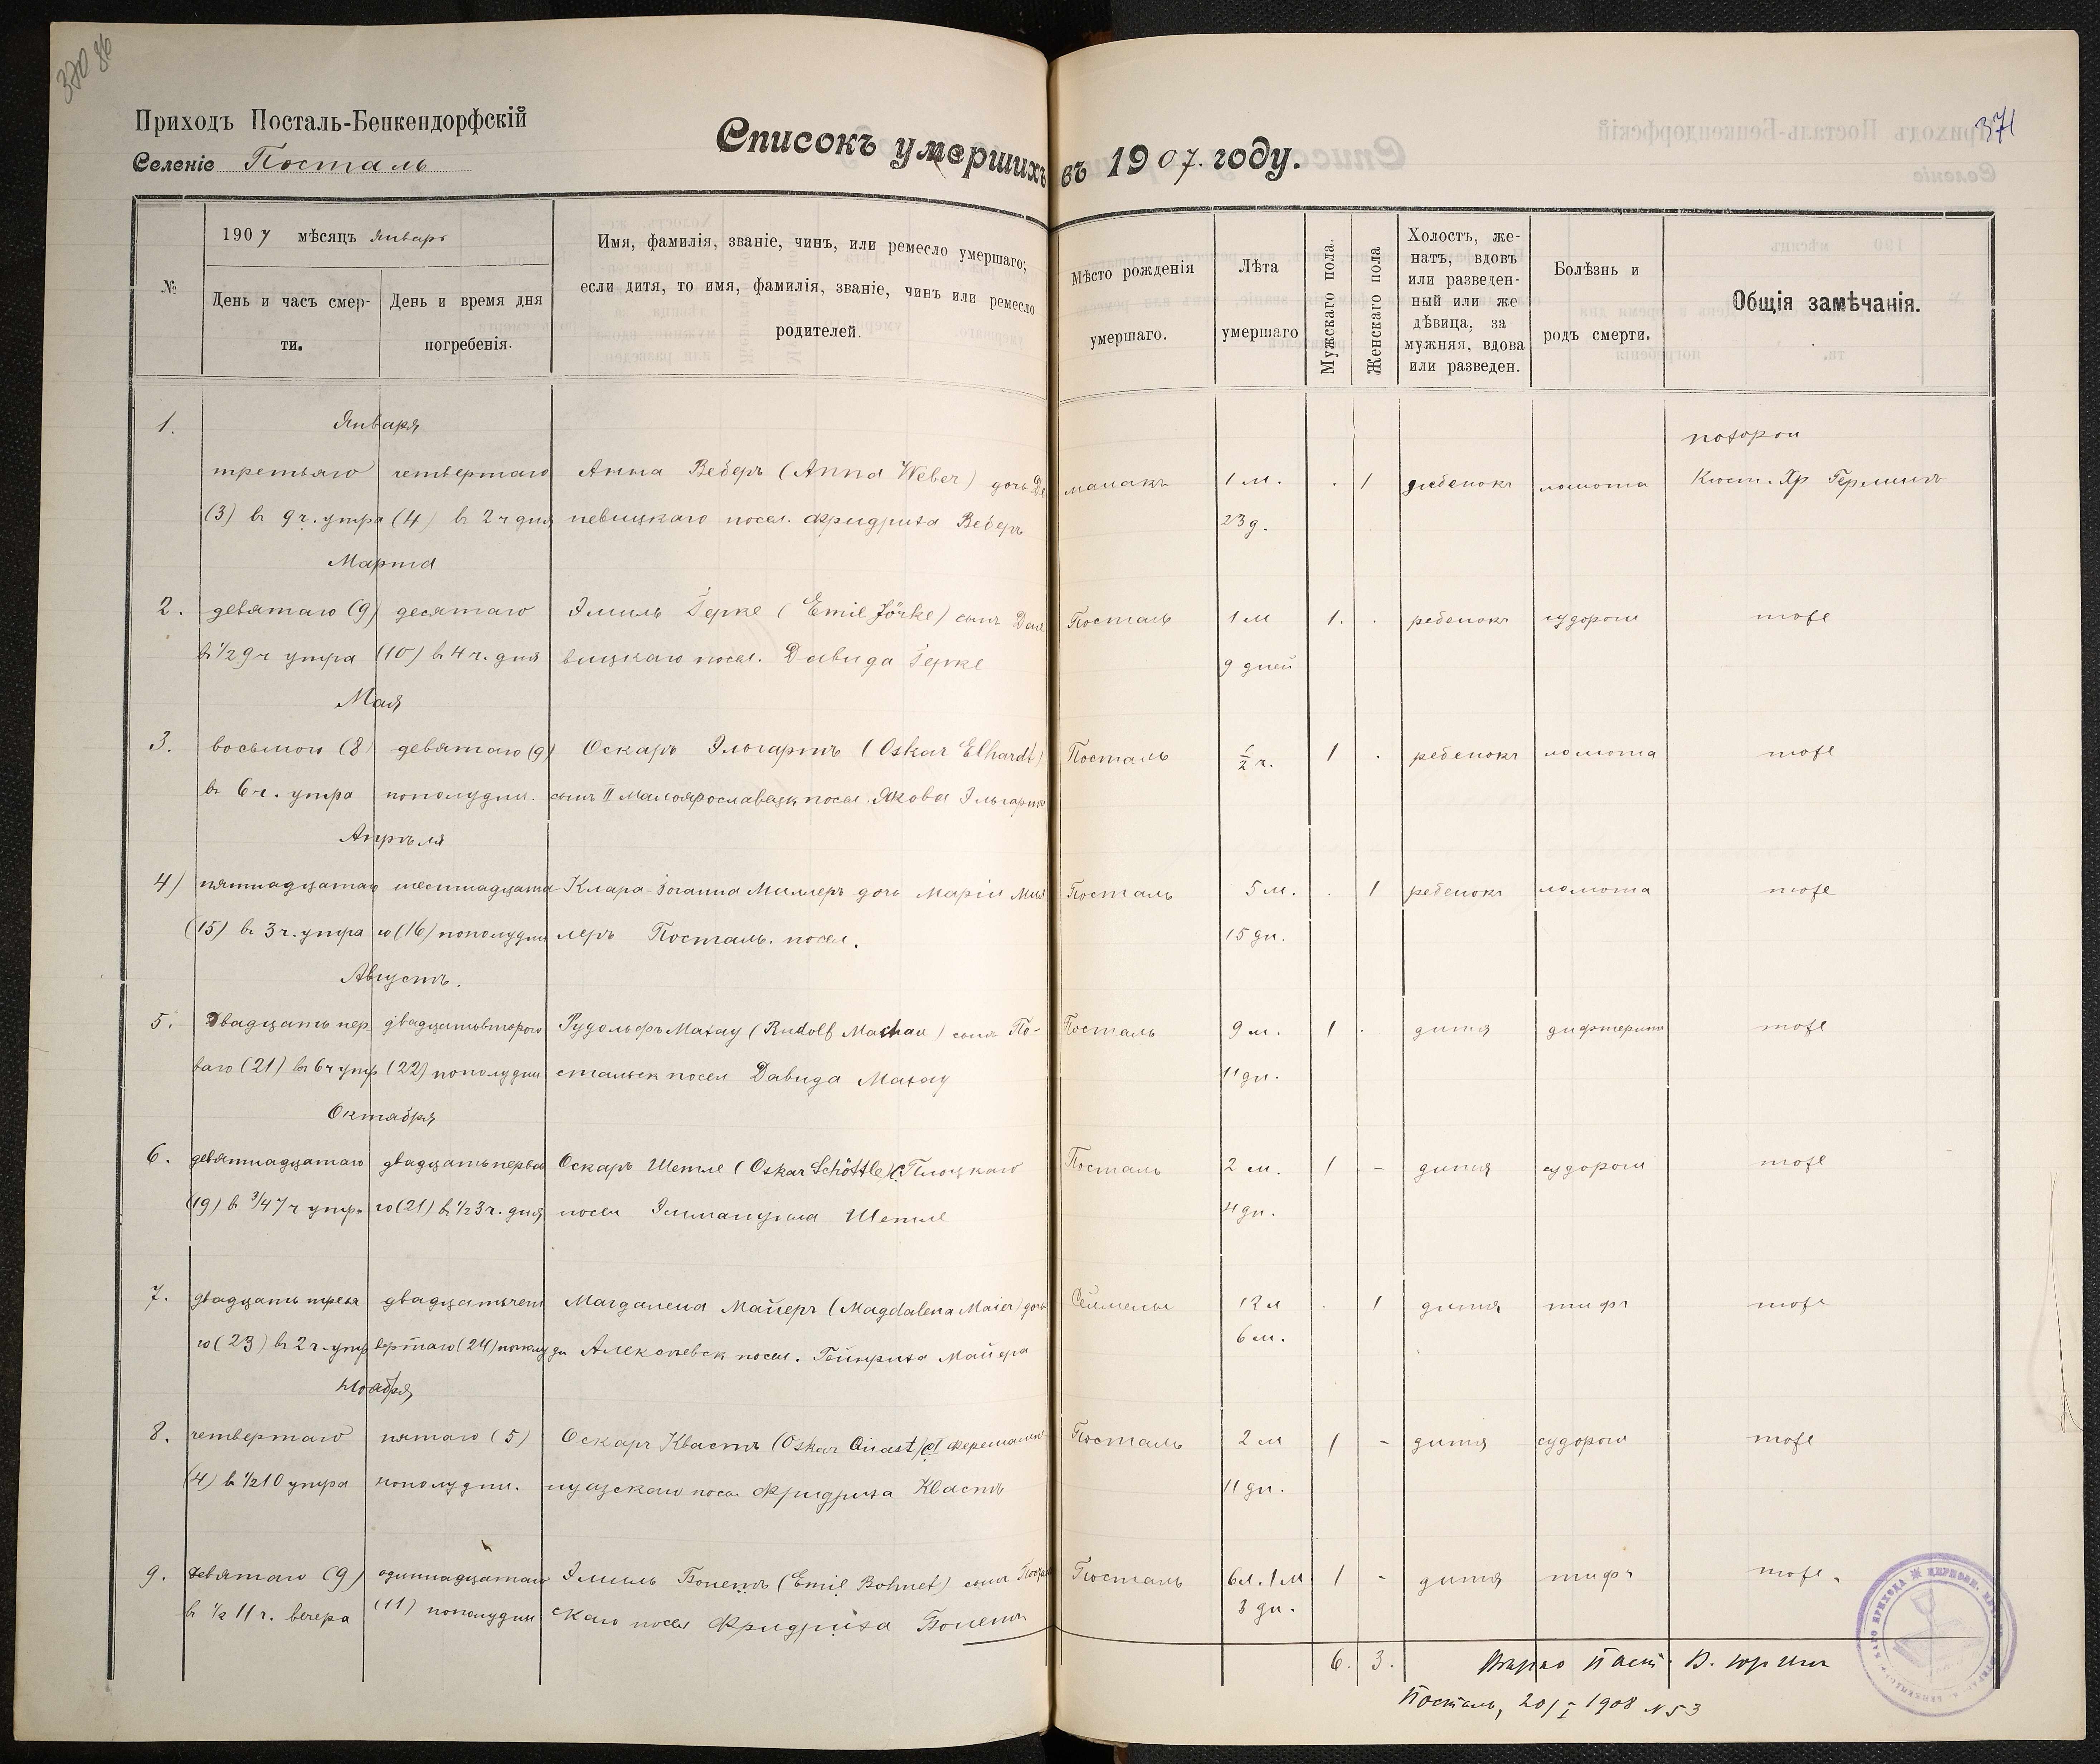 370 об
371
Приходъ Посталь-Бенкендорфскій
Селеніе Посталь
Списокъ умершихъ въ 1907. году.
№
1907 мѣсяцъ Январь
День и часъ смер-
ти.
День и время дня
погребенія.
Имя, фамилія, званіе, чинъ, или ремесло умершаго;
если дитя, то имя, фамилія, званіе, чинъ или ремесло
родителей.
Мѣсто рожденія
умершаго.
Лѣта
умершаго
Мужскаго пола.
Женскаго пола
Холостъ, же-
натъ, вдовъ
или разведен-
ный или же
дѣвица, за
мужняя, вдова
или разведен.
Болѣзнь и
родъ смерти.
Общія замѣчанія.
Января
похорон
1. третьяго четвертаго Анна Веберъ (Anna Weber) дочь Де 1 м. . 1 ребенокъ ломота Кюст. Хр
(3) въ 9 ч. утра (4) въ 2 ч дня невицкаго посел. Фридриха Веберъ 23 д.
Марта
2. девятаго (9) десятаго Эмиль Герке (Emil Jörke) сынъ Дене Посталь 1 м 1. . ребенокъ судорог тоже
въ 1/2 9 ч утра (10) в 4 ч. дня вицкаго посел. Давида Герке 9 дней
Мая
3. восьмого (8) девятаго (9) Оскаръ Эльгартъ (Oskar Elhardt) Посталь 1/2 г. 1 . ребенокъ ломота тоже
въ 6 ч. утра пополудни. сынъ II Малоярославецк посел. Якова Эльгартъ
Апрѣля
4) пятнадцатаго шестнадцата- Клара-Іоганна Миллеръ дочь Маріи Мил Посталь 5 м. . 1 ребенокъ ломота тоже
(15) въ 3 ч. утра го (16) пополудни леръ Посталь. посел. 15 дн.
Августъ.
5. Двадцать пер двадцатьвторого Рудольфъ Махау (Rudolf Machau) сынъ По- Посталь 9 м. 1 . дитя дифтеритъ тоже
ваго (21) въ 6 ч утр (22) пополудни стальск посел Давида Махау 11 дн.
Октября
6. девятнадцатаго двадцатьперва Оскаръ Шетле (Oskar Schöttle) с. Плоцкаго Посталь 2 м. 1 - дитя судорог тоже
(19) в 3/4 7 ч утра го (21) в 1/2 3 ч. дня посел Эммануила Шетле 4 дн.
7. двадцать третья двадцатьчет Магдалена Майеръ (Magdalena Maier) дочь Селмены 12 л . 1 дитя тифъ тоже
го (23) въ 2 ч. утр вертаго (24) пополу дн Алексѣевск посел. Гейнриха Майера 6 м.
Ноября
8. четвертаго пятаго (5) Оскаръ Квастъ (Oskar Quast) с. Ферешампе Посталь 2 м 1 - дитя судорог тоже
(4) в 1/2 10 утра пополудни. нуазскаго посел Фридриха Квастъ 11 дн.
9. девятаго (9) одиннадцатаго Эмиль Бонетъ (Emil Bohnet) сынъ Посталь 6 л. 1 м 1 - дитя тифъ тоже.
в 1/2 11 ч. вечера (11) пополудни скаго посел Фридриха Бонетъ 3 дн.
6. 3. Вѣрно Паст.
Посталь, 20/I 1908 № 53